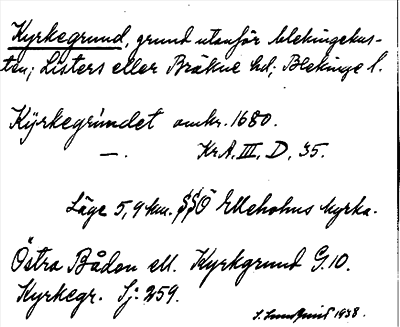 Kyrkegrund, grund utanför blekingekus-
ten; Listers eller Bräkne hd; Blekinge l.
Kÿrkegrundet omkr. 1680.
—. Kr.A. III, D, 35.
Läge 5,9 km. SSÖ Elleholms kyrka.
Östra Båden ell. Kyrkgrund G.10.
Kyrkegr. Sj: 259.
S. Lundquist 1938.